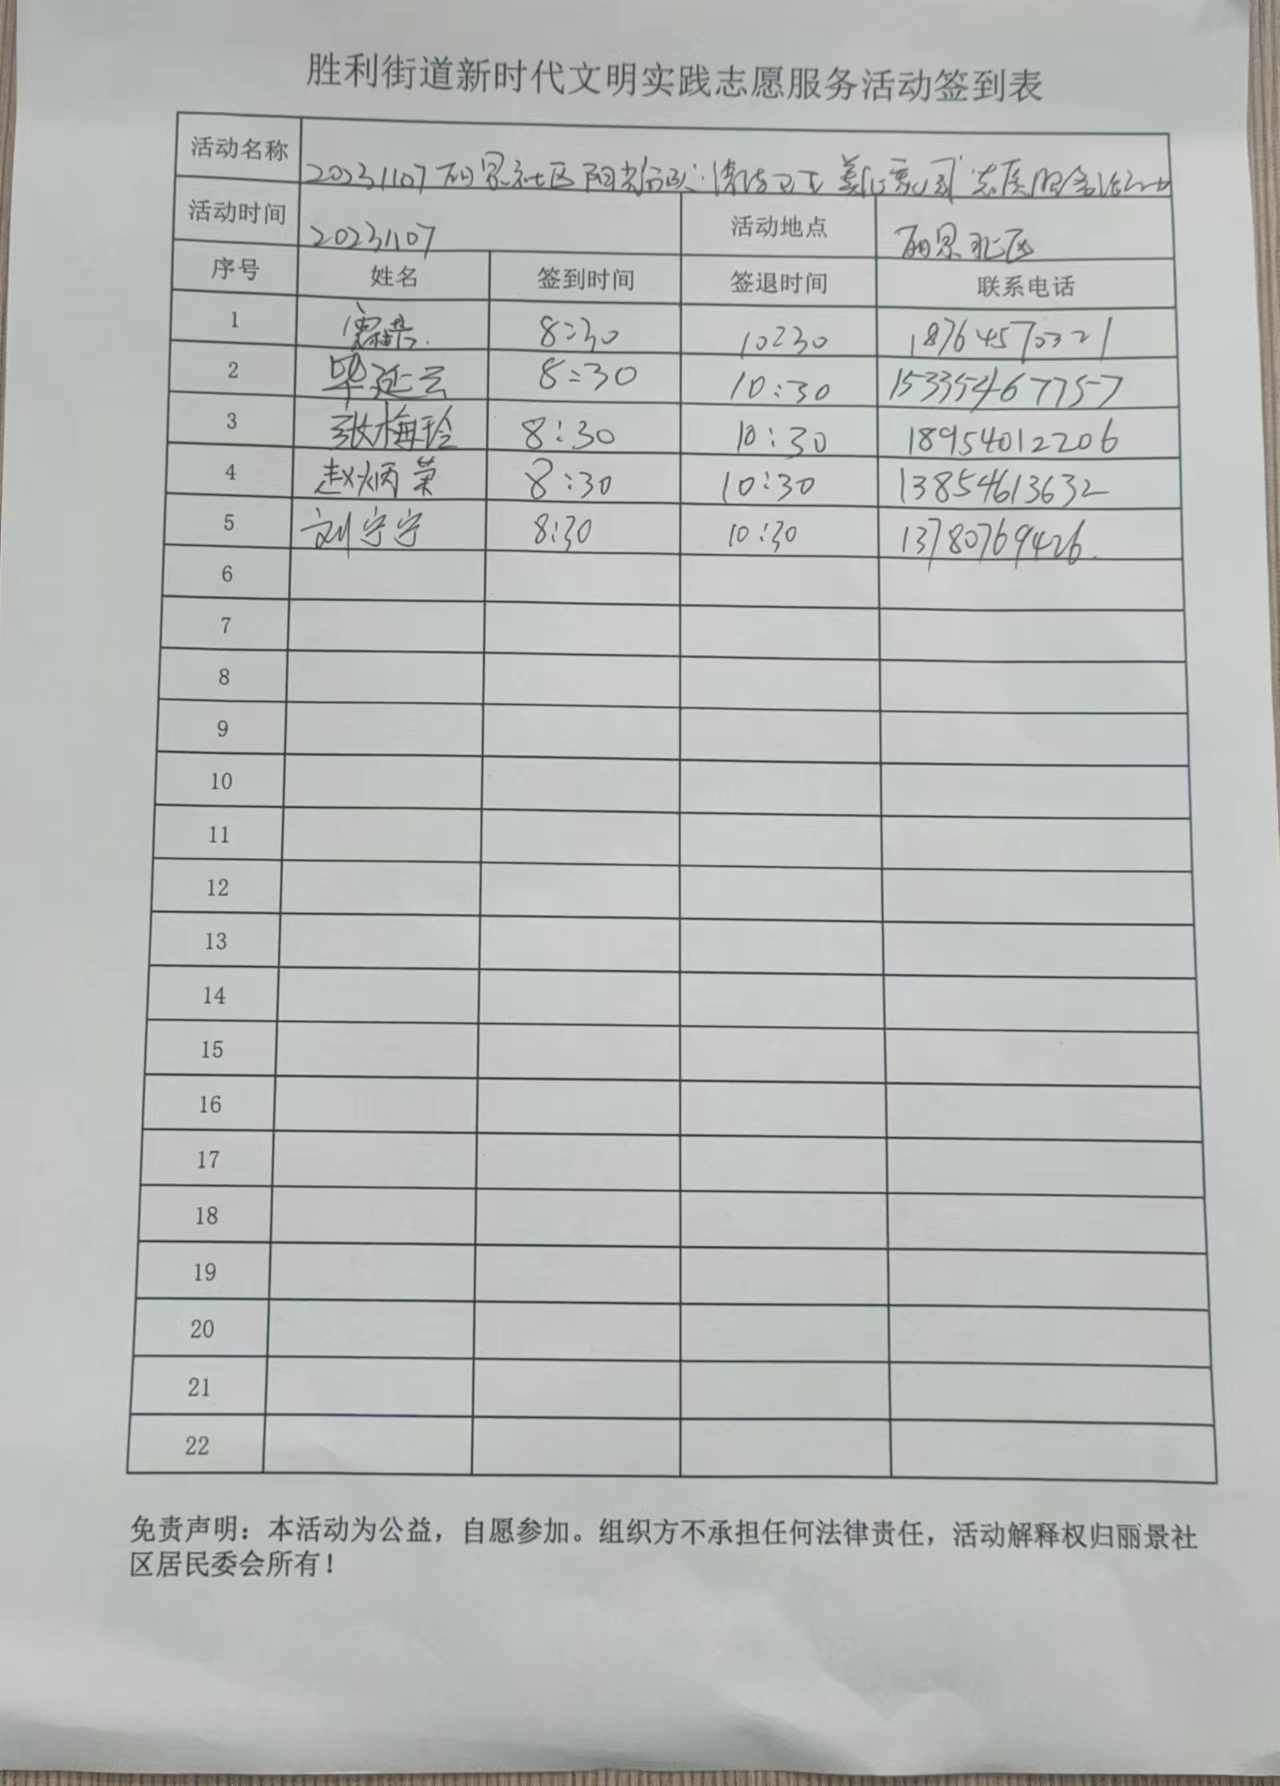 胜利街道新时代文明实践志愿服务活动签到表
活动名称 20231107丽景社区阳光 清洁卫生 美化家园 志愿服务活动
活动时间 20231107 活动地点 丽景北区
序号 姓名 签到时间 签退时间 联系电话
1 8:30 10:30 18764570321
2 毕延云 8:30 10:30 15335467757
3 张梅玲 8:30 10:30 18954012206
4 赵炳荣 8:30 10:30 13854613632
5 刘宁宁 8:30 10:30 13780769426
6
7
8
9
10
11
12
13
14
15
16
17
18
19
20
21
22
免责声明：本活动为公益，自愿参加。组织方不承担任何法律责任，活动解释权归丽景社
区居民委会所有！